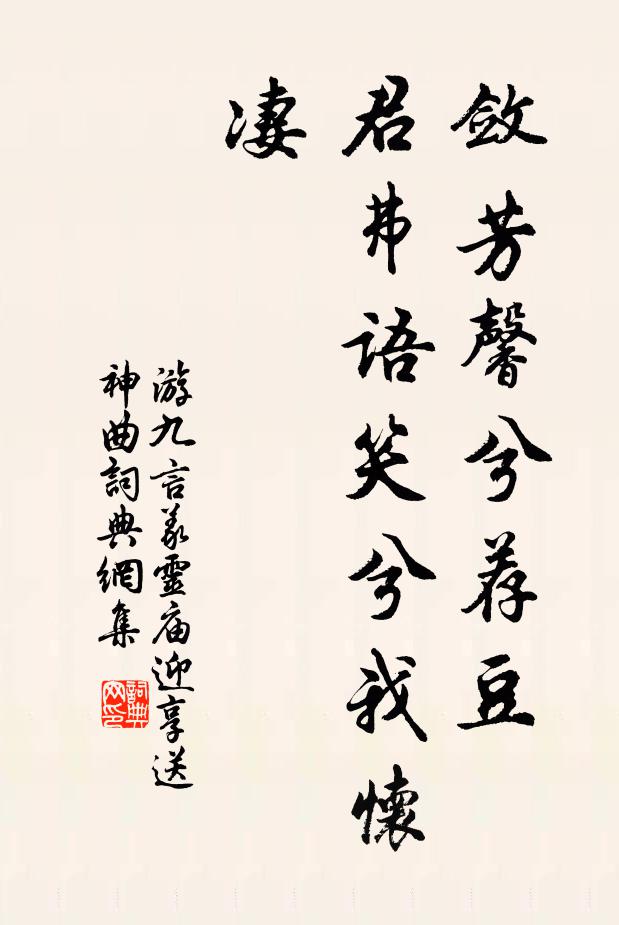 斂芳馨兮荐豆
君弗語笑兮我懷
淒
游九言義靈庙迎享送
神曲詞典網集
詞典网印